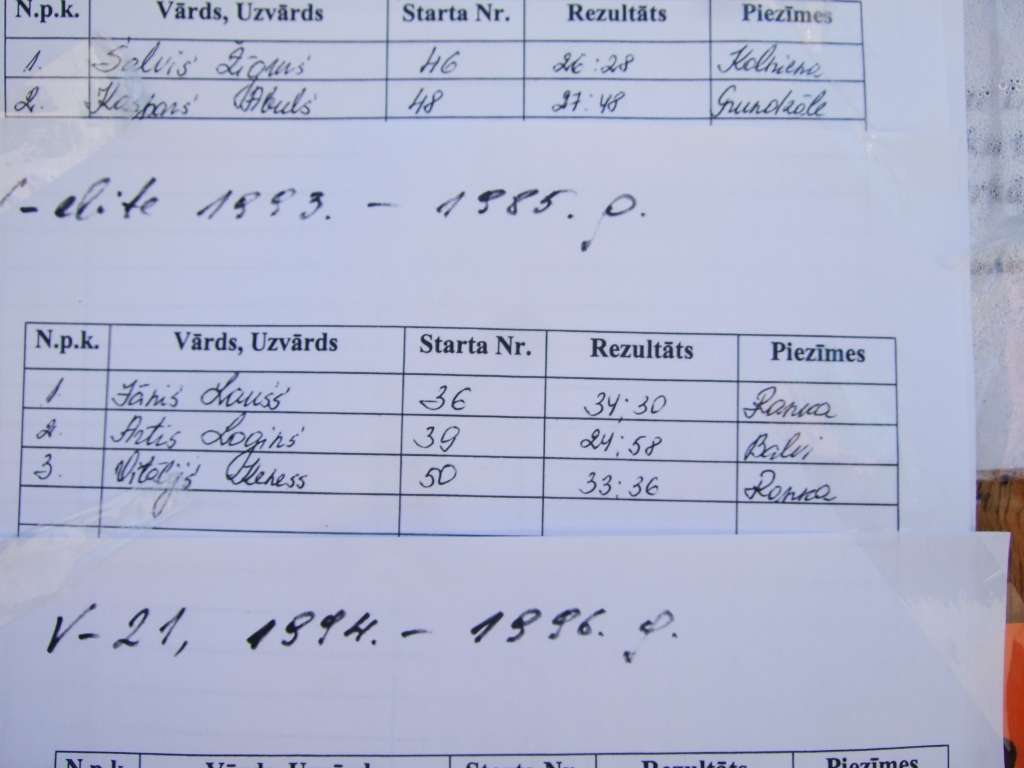 N.p.k. Vārds, Uzvārds Starta Nr. Rezultāts Piezīmes
1. Salvis Žīgurs 46 26:28 Kalniena
2. Kaspars Abuls 48 27:48 Grundzāle
V-elite 1993. - 1985. g.
N.p.k. Vārds, Uzvārds Starta Nr. Rezultāts Piezīmes
1. Jānis 36 34:30 Ranka
2. Artis Logins 39 24:58 Balvi
3. Vitālijs 50 33:36 Ranka
V-21, 1994. - 1996. g.
N.p.k. Vārds, Uzvārds Starta Nr. Rezultāts Piezīmes